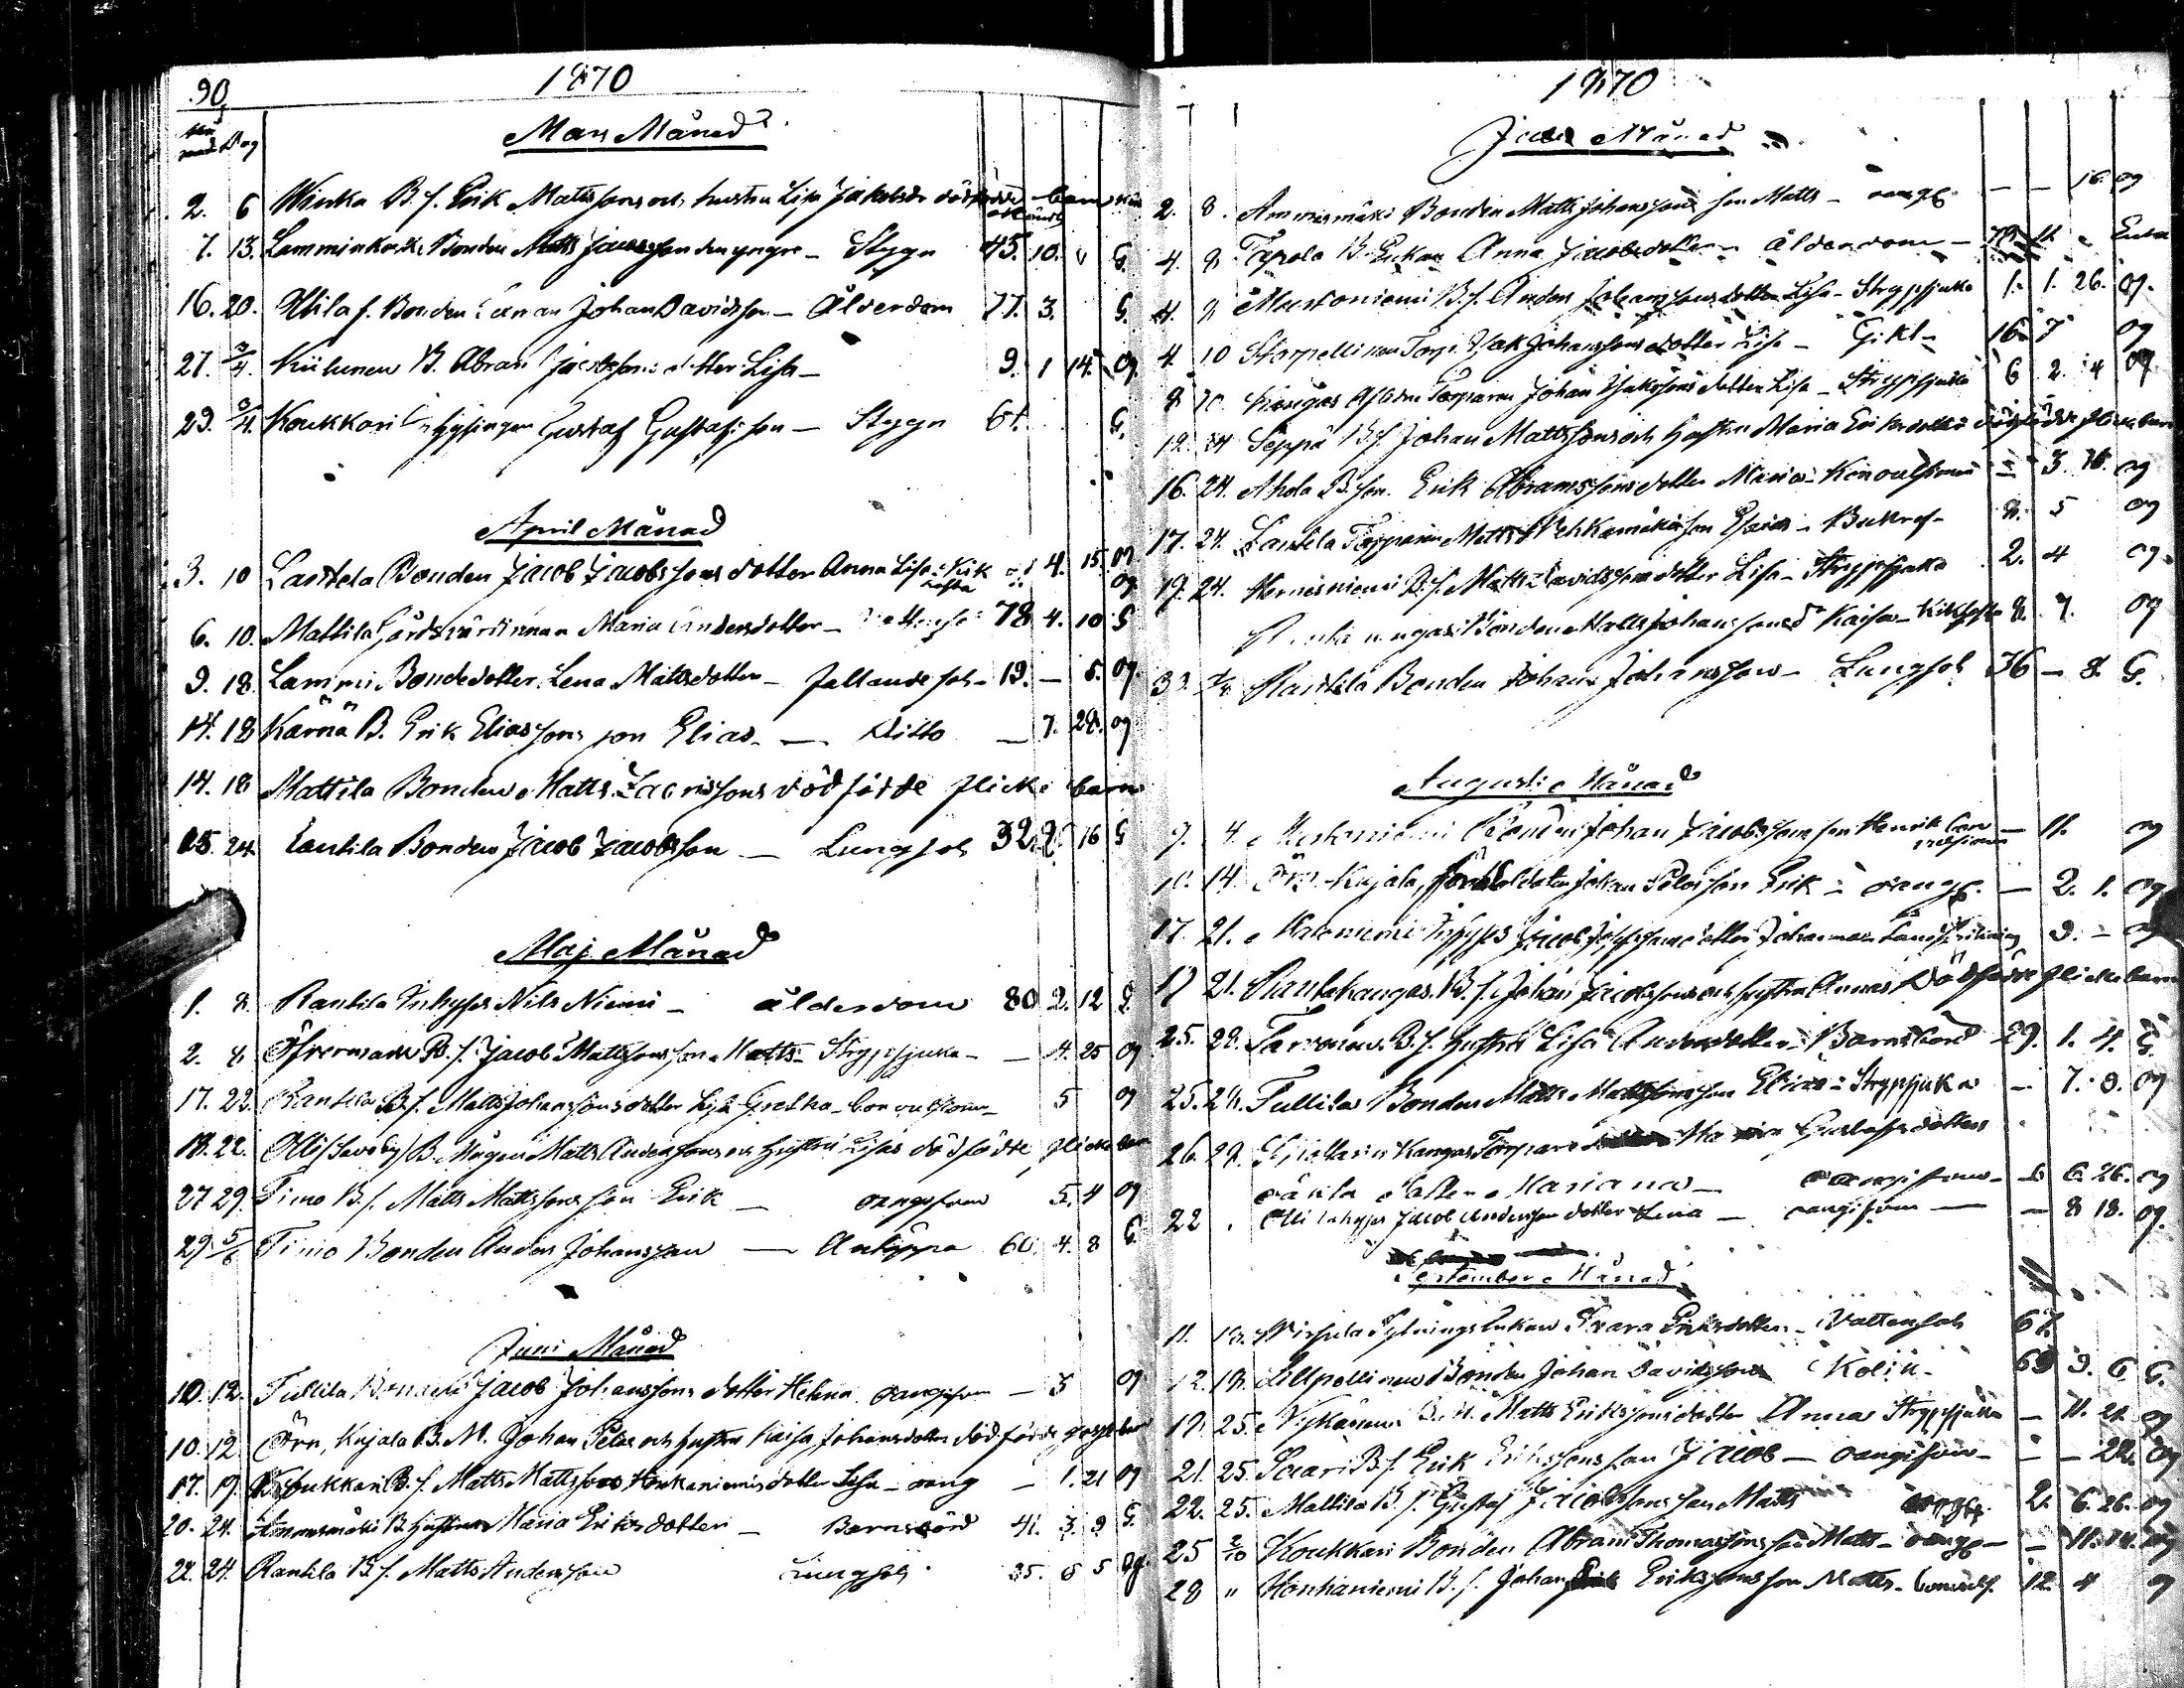 90
1870
Mars Månad
Dag
2. 6 Winka B. s. Erik Mattssons och hustru Lisa Jakobsdr dödfödde barn
7. 13. Lamminkoski Bonden Matts Jacobsson den yngre - Stygn 45. 10. " G.
16. 20. Ulila f. Bonden Johan Davidsson - Ålderdom 77. 3. G.
27. 3/4. Kiilunen B. Abram Jacobssons dotter Lisa - 9. 1 14. og
29. 3/4. Koukkari Inhysingen Gustaf Gustafsson - Stygn 61. G.
April Månad
3. 10 Lantela Bonden Jacob Jacobssons dotter Anna Lisa - Kik hosta 4. 15. og
6. 10. Mattila Gårdsvärdinnan Maria Andersdotter - 78 4. 10 G
9. 18. Lammi Bondedotter Lena Mattsdotter - fallandesot - 19. - 5. og.
14. 18 Kärnä B. Erik Eliassons son Elias. - Ditto - 7. 28. og
14. 18 Mattila Bonden Matts Zacrissons dödfödde flicke barn
15. 24 Lantila Bonden Jacob Jacobsson - Lungsot 32. 2. 16 G
Maj Månad
1. 8. Rantila Inhyses Nils Niemi - ålderdom 80 2. 12 G.
2. 8 Öfvermark B. s. Jacob Mattssons son Matts - Strypsjuka - - 4. 25 og
17. 22. Rantila B. s. Matts Johanssons dotter Lisa Gretka - Convulsion - 5 og
18. 22. Olli B. Mågen Matts Anderssons och hustru Lisas dödfödde flicke barn
27 29. Timo B. s. Matts Mattssons son Erik - oangifven 5. 4 og
29 5/6 Timo Bonden Anders Johansson - 60. 4. 8 G
Juni Månad
10. 12. Tullila Bonden Jacob Johanssons dotter Helena oangifven - 3 og
10. 12 Örn, Kujala B. M. Johan Peter och hustru Kaisa Johansdotters dödfödde gosse barn
17. 19. Koukkari B. s. Matts Mattsson Honkaniemis dotter Lisa - oang - 1. 21 og
20. 24. Ammesmäki B. hustrun Maria Eriksdotter - Barnsbörd 41. 3. 9 G.
22. 24. Rantila B. s. Matts Andersson Lungsot. 35. 8 5 og.
1870
Juli Månad
2. 8. Ammesmäki Bonden Matts Johanssons son Matts - oangf. - - 16. og
4. 8 Tapola B. Enkan Anna Jacobsdotter - ålderdom - 79. 11. Enka
4. " Mustoniemi B. s. Anders Johanssons dotter Lisa - Strypsjuka 1. 1. 26. og.
4. 10 Storpellinen Torp. Isak Johanssons dotter Lisa - Gikt - 16. 7 og
8 10. Kangas Afl. Torparen Johan Isakssons dotter Lisa - Strypsjuka 6 2. 4 og
12. 24 Seppä B. s. Johan Mattssons och hustru Maria Eriksdotters dödfödde flickebarn
16. 24. Ahola B. son. Erik Abramssons dotter Maria - Konvulsion - 3. 16. og
17. 24. Lantela Torparen Matts Pehkamäkis son Esaias - 8. 5 og
19. 24. Hernesniemi B. s. Matts Davidssons dotter Lisa - Strypsjuka 2. 4 og.
Bonden Matts Johanssons d. Kaisa - Kikhosta 8. 7. og
Rantila Bonden Johan Johansson - Lungsot 36 - 8. G.
Augusti Månad
7. 4. Mustoniemi Bonden Johan Jacobssons son Henrik Con vulsion - 11. og
10. 14. Örn Kujala, förra Soldaten Johan Peters son Erik - oangf. - 2. 1. og
17. 21. Inhyses Jacob Josepssons dotter Johanna 9. - og
17 21. Rantakangas B. s. Johan Jacobssons och hustru Annas Dödfödde flickebarn
25. 28. B. s. hustru Lisa Andersdotter - Barnsbörd 29. 1. 4. G.
25. 28. Tullila Bonden Matts Mattssons son Elias - Strypsjuka - 7. 9. og
26. 28. Kangas Torpare Maria Gustafsdotters
oäkta dotter Mariana - oangifven - 6. 26. og
22 Olli Inhyses Jacob Anderssons dotter Lena - oangifven - 8 18. og.
September Månad
11. 18. Wirkula Sytningsenkan Sara Eriksdotter - Vattensot 67.
12. 18. Lillpellinen Bonden Johan Davidsson Kolik - 69 9. 6 G.
19. 25. Nykänen B. M. Matts Erikssons dotter Anna Strypsjuka - 11. 21. og
21. 25. Saari B. s. Erik Erikssons son Jacob - oangifven - - - 22. og
22. 25. Mattila B. s. Gustaf Jacobssons son Matts oangf. 2. 6. 26. og
25 2/10 Koukkari Bonden Abram Thomassons son Matts - oangf - - 11. 14. og
28 " Honkaniemi B. s. Johan Erikssons son Matts - Convuls. 12. 4 og